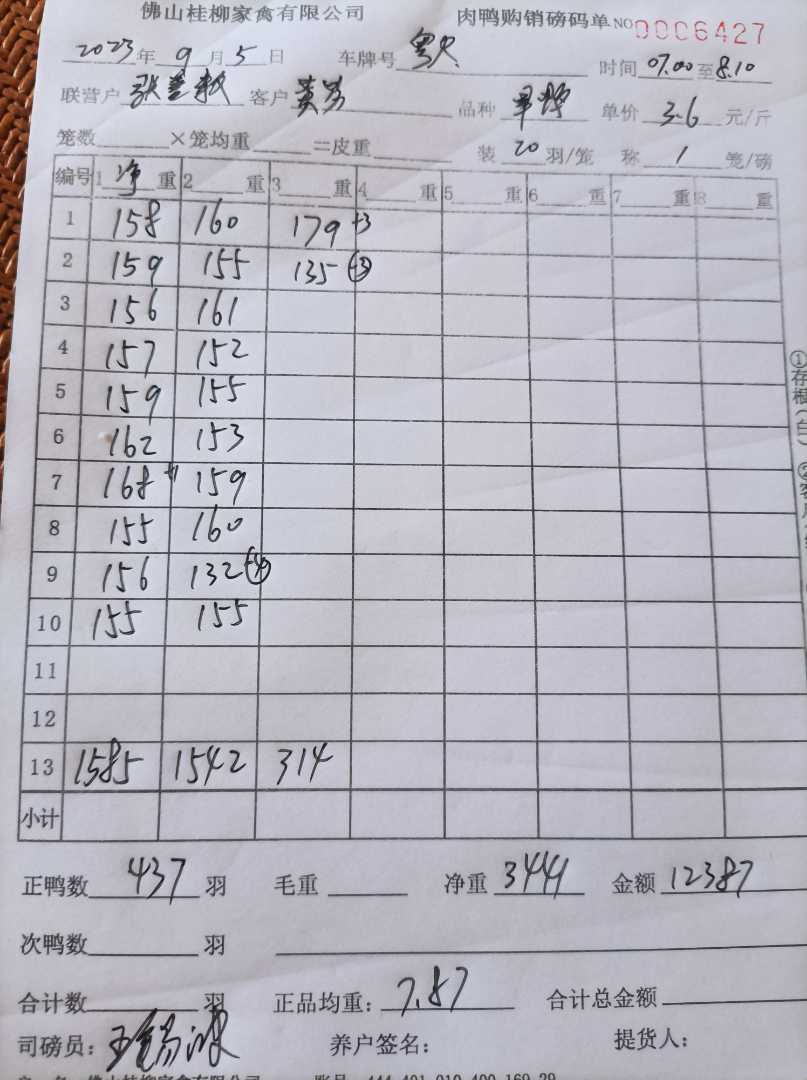 佛山桂柳家禽有限公司 肉鸭购销磅码单 NO 0006427
2023年9月5日 车牌号 粤 时间 07.00至8.10
联营户 客户 品种 单价 3.6 元/斤
笼数 ×笼均重 =皮重 装 20 羽/笼 称 1 笼/磅
编号 1 净 重 2 重 3 重 4 重 5 重 6 重 7 重 8 重
1 158 160 179 +3
2 159 155 135 -3
3 156 161
4 157 152
5 159 155
6 162 153
7 168 +1 159
8 155 160
9 156 132 -4
10 155 155
11
12
13 1585 1542 314
小计
正鸭数 437 羽 毛重 净重 3441 金额 12387
次鸭数 羽
合计数 羽 正品均重: 7.87 合计总金额
司磅员: 养户签名: 提货人:
佛山桂柳家禽有限公司
①存根(白)